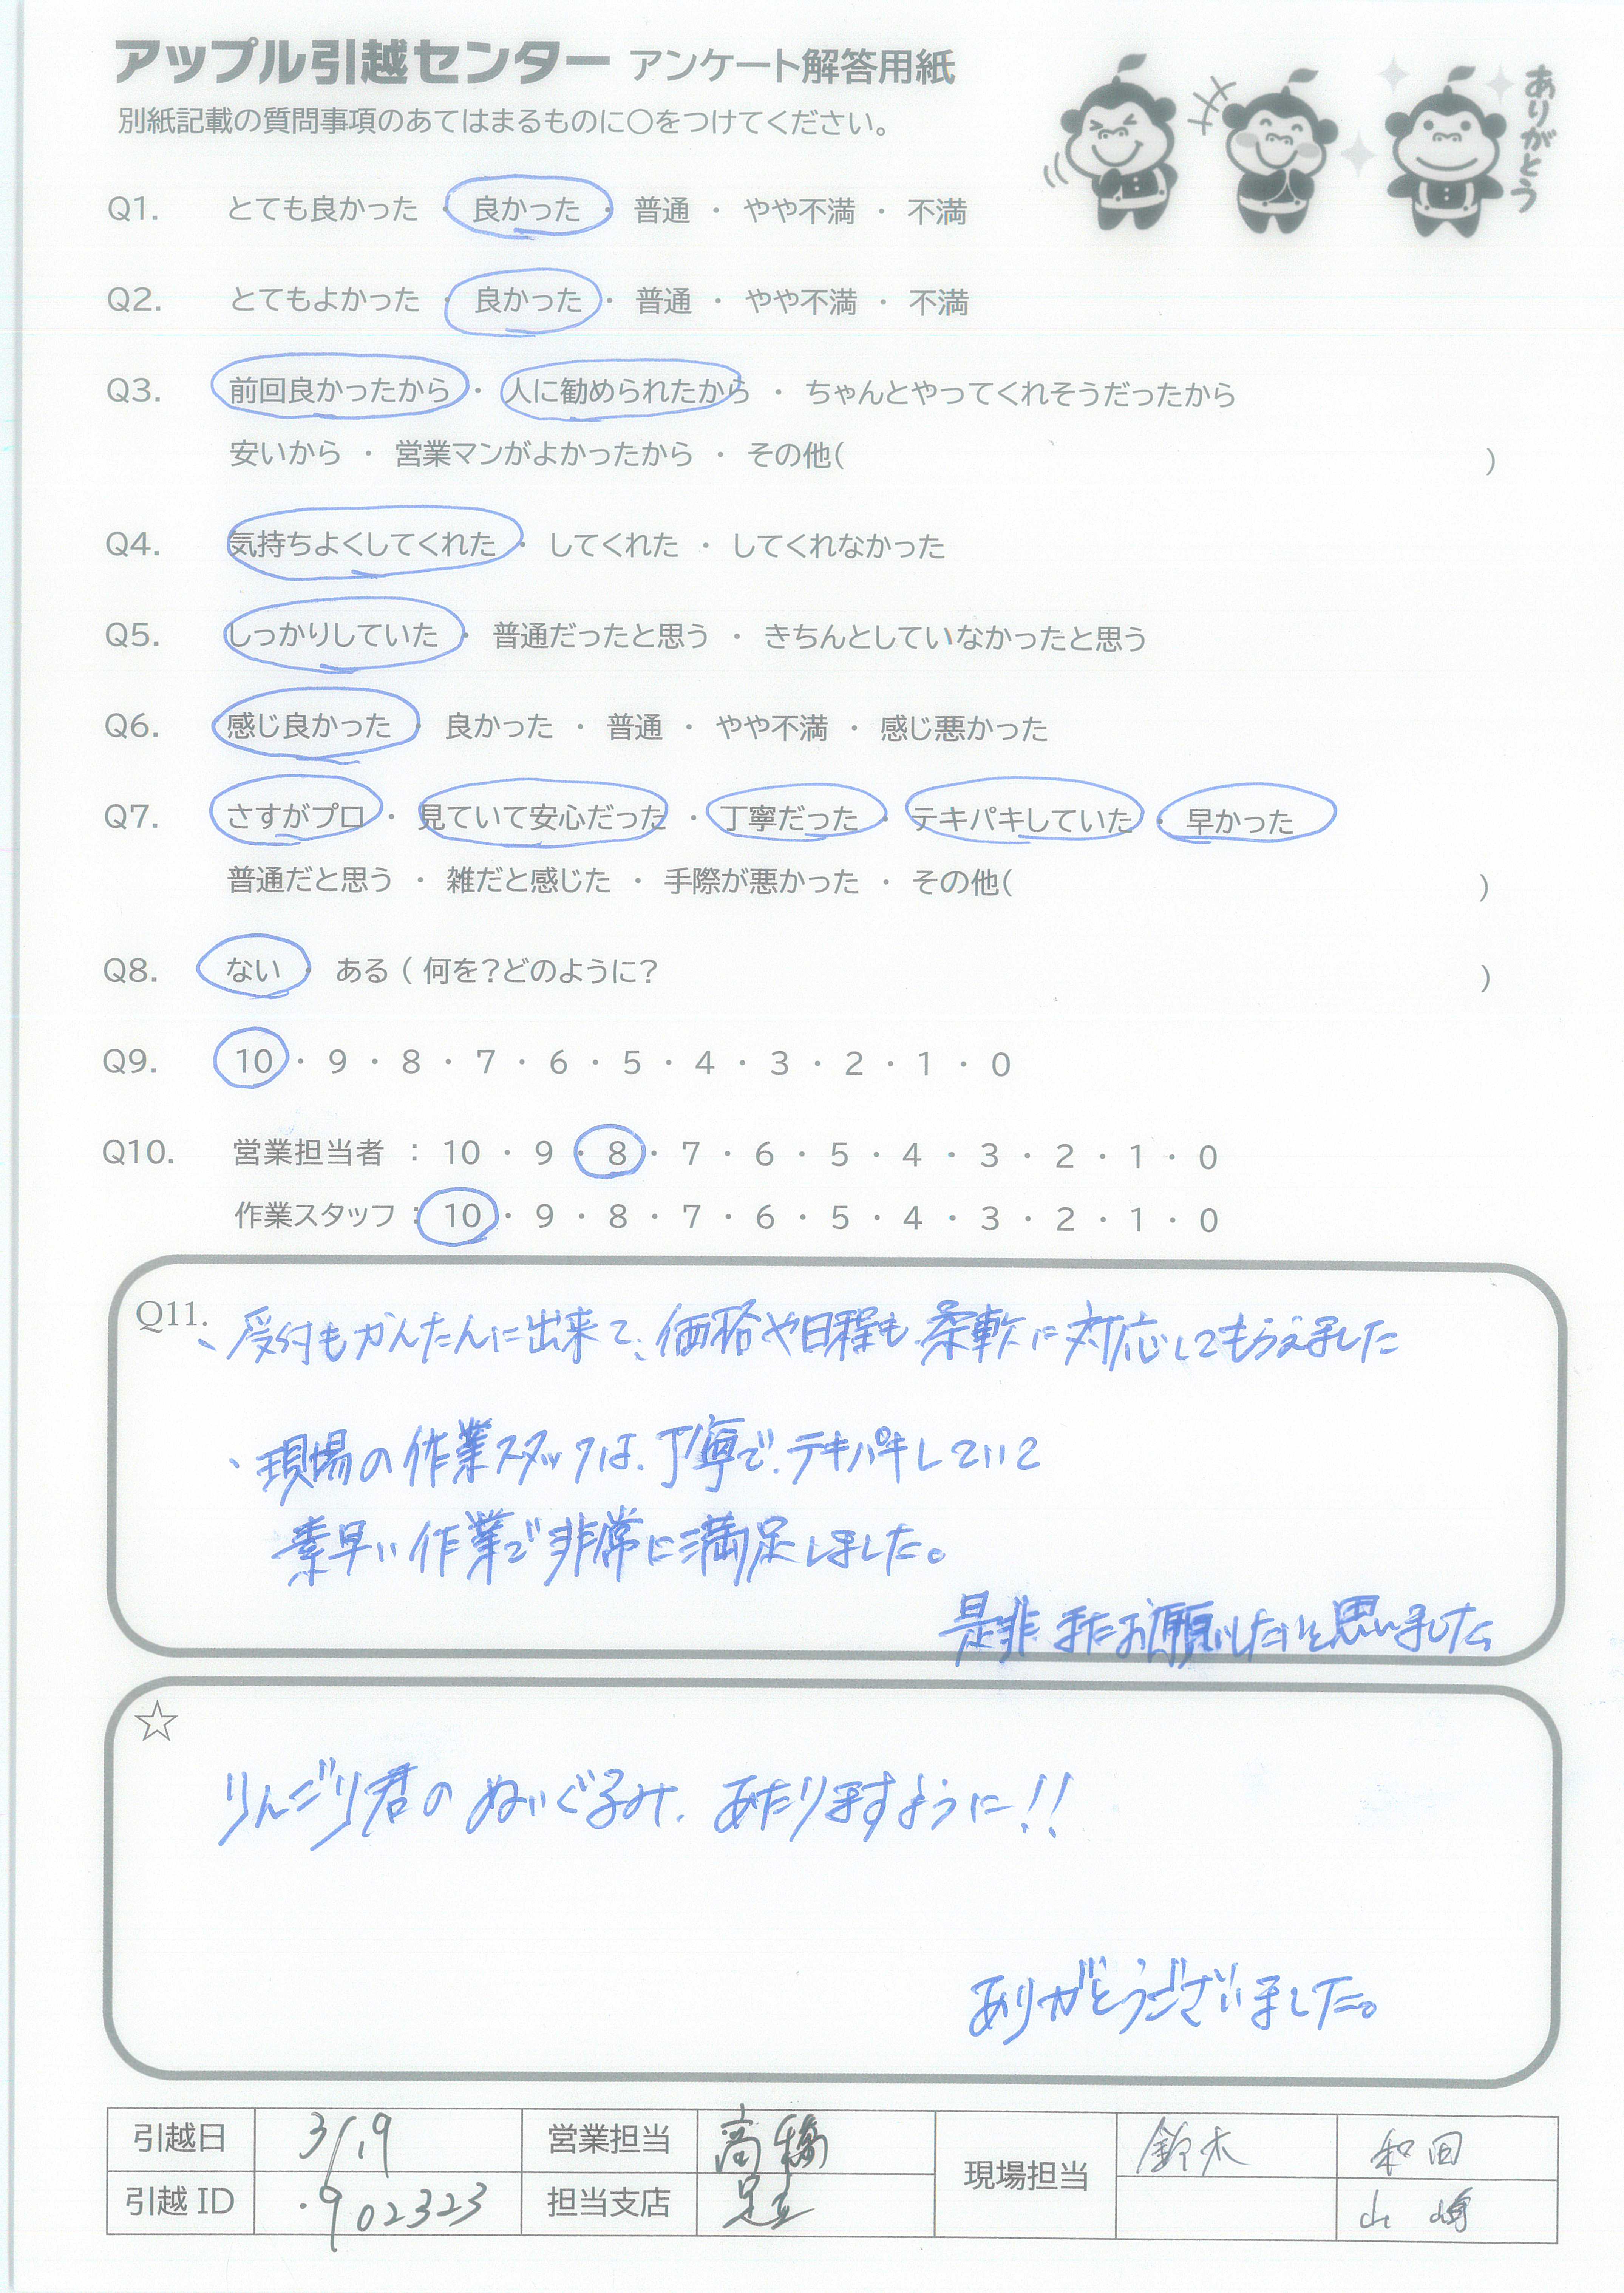 アップル引越センター アンケート解答用紙
別紙記載の質問事項のあてはまるものに○をつけてください。
ありがとう
Q1. とても良かった ・ 良かった ・ 普通 ・ やや不満 ・ 不満
Q2. とてもよかった ・ 良かった ・ 普通 ・ やや不満 ・ 不満
Q3. 前回良かったから ・ 人に勧められたから ・ ちゃんとやってくれそうだったから
安いから ・ 営業マンがよかったから ・ その他( )
Q4. 気持ちよくしてくれた ・ してくれた ・ してくれなかった
Q5. しっかりしていた ・ 普通だったと思う ・ きちんとしていなかったと思う
Q6. 感じ良かった ・ 良かった ・ 普通 ・ やや不満 ・ 感じ悪かった
Q7. さすがプロ ・ 見ていて安心だった ・ 丁寧だった ・ テキパキしていた ・ 早かった
普通だと思う ・ 雑だと感じた ・ 手際が悪かった ・ その他( )
Q8. ない ・ ある ( 何を？どのように？ )
Q9. 10 ・ 9 ・ 8 ・ 7 ・ 6 ・ 5 ・ 4 ・ 3 ・ 2 ・ 1 ・ 0
Q10. 営業担当者 : 10 ・ 9 ・ 8 ・ 7 ・ 6 ・ 5 ・ 4 ・ 3 ・ 2 ・ 1 ・ 0
作業スタッフ : 10 ・ 9 ・ 8 ・ 7 ・ 6 ・ 5 ・ 4 ・ 3 ・ 2 ・ 1 ・ 0
Q11. 、受付もかんたんに出来て、価格や日程も柔軟に対応してもらえました
、現場の作業スタッフは、丁寧で、テキパキしていて
素早い作業で非常に満足しました。
是非またお願いしたいと思いました。
☆
りんごり君のぬいぐるみ、あたりますように!!
ありがとうございました。
引越日 3/19 営業担当 高橋 現場担当 鈴木 和田
引越ID 902323 担当支店 足立 山崎